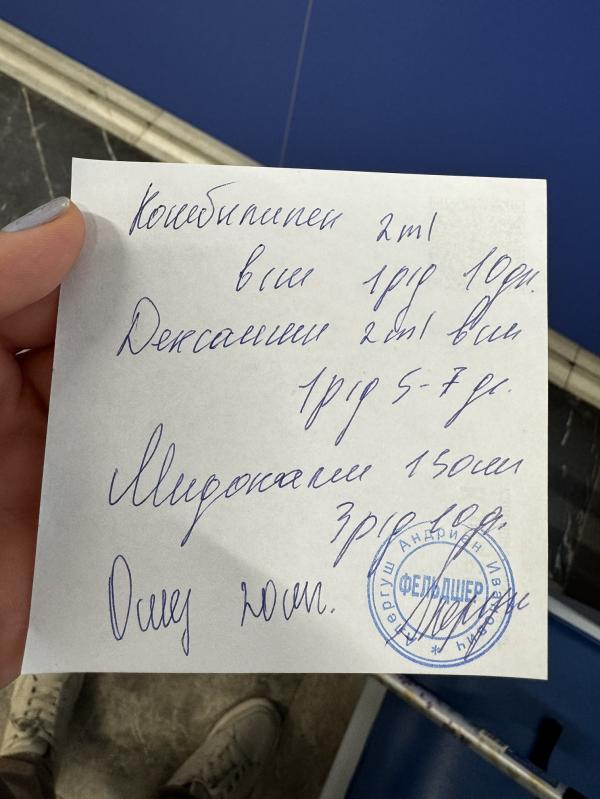 Комбилипен 2ml
в/м 1р/д 10дн.
Дексалгин 2ml в/м
1р/д 5-7 дн.
Мидокалм 150мг
3р/д 10дн.
Омез 20мг.
ФЕЛЬДШЕР
Андриан Иванович